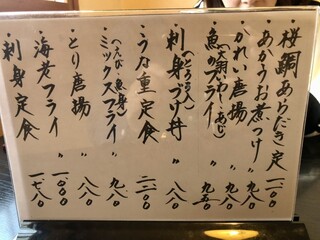 桜鯛あらだき定 一二〇〇
あかうお煮つけ〃 九八〇
かれい唐揚〃 九八〇
魚のフライ〃 九五〇
(鯛・いわし・あじ)
刺身づけ丼 八八〇
(とろろ入)
うな重定食 二二〇〇
ミックスフライ〃 九八〇
(えび・魚・身)
とり唐揚〃 八八〇
海老フライ〃 一〇〇〇
刺身定食 一七八〇